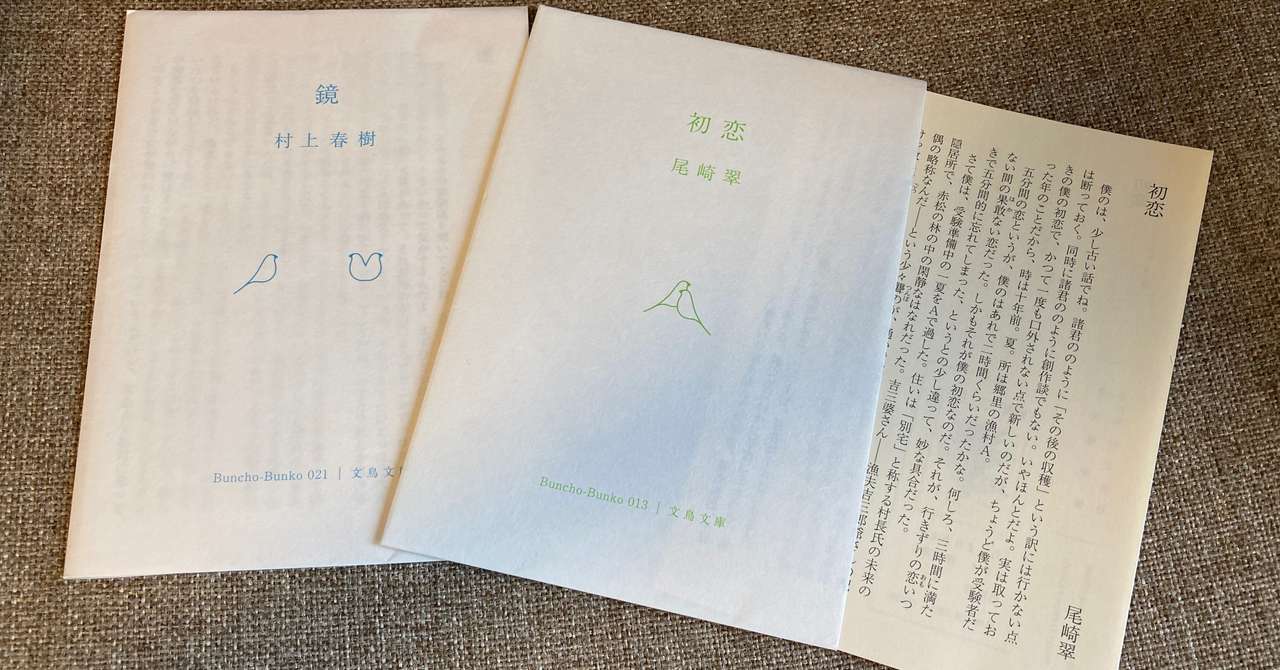 鏡
村上春樹
Buncho-Bunko 021 | 文鳥文
初恋
尾崎翠
Buncho-Bunko 013 | 文鳥文庫
初恋
尾崎翠
僕のは、少し古い話でね。諸君ののように「その後の収穫」という訳には行かない点
は断っておく。同時に諸君ののように創作談でもない。いやほんとだよ。実は取ってお
きの僕の初恋で、かつて一度も口外されない点で新しいのだが、ちょうど僕が受験者だ
った年のことだから、時は十年前。夏。所は郷里の漁村A。
五分間の恋というが、僕のはあれで二時間くらいだったかな。何しろ、三時間に満た
ない間の果敢ない恋だった。しかもそれが僕の初恋なのだ。それが、行きずりの恋いつ
きで五分間的に忘れてしまった、というとの少し違って、妙な具合だった。
さて僕は、受験準備中の一夏をAで過した。住いは「別宅」と称する村長氏の未来の
隠居所で、赤松の林の中の閑静なはなれだった。吉三婆さん――漁夫吉三郎爺さん
偶の略称なんだ――という少々聾のが